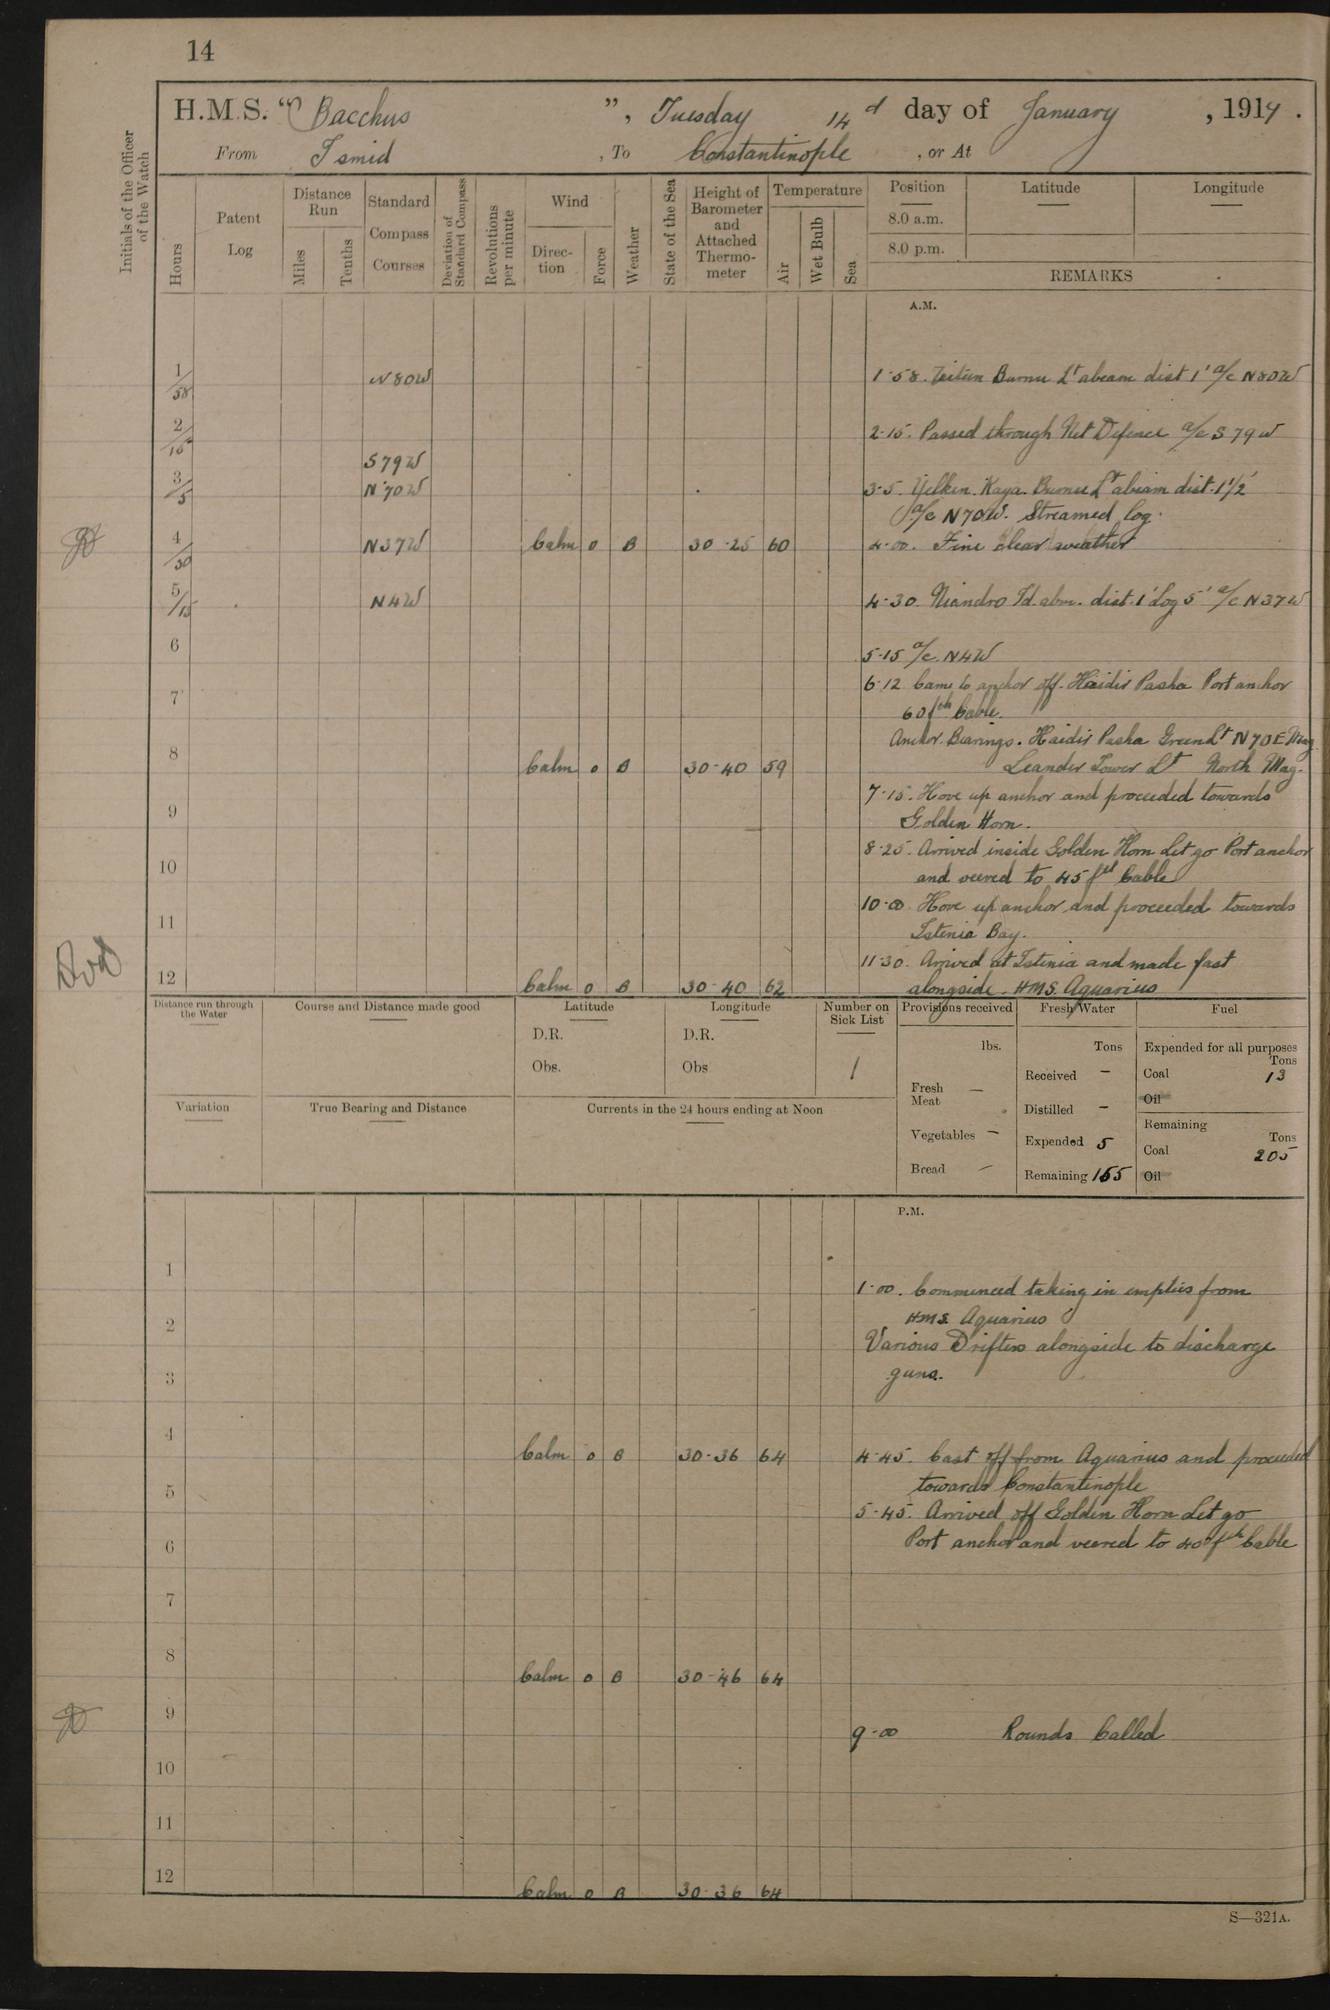 14
H.M.S. "Bacchus", Tuesday 14 d day of January, 1919.
From Ismid, To Constantinople, or At
Initials of the Officer of the Watch
Hours
Patent Log
Distance Run
Miles
Tenths
Standard Compass Courses
Deviation of Standard Compass
Revolutions per minute
Wind
Direction
Force
Weather
State of the Sea
Height of Barometer and Attached Thermometer
Temperature
Air
Wet Bulb
Sea
Position Latitude Longitude
8.0 a.m.
8.0 p.m.
REMARKS
A.M.
1/58 N80W 1·58. Burnu Lt abeam dist 1' a/c N80W
2/15 2·15. Passed through Net Defence a/c S 79 W
S79W
3/5 N70W 3·5. Yelken Kaya Burnu Lt abeam dist. 1 1/2'
a/c N70W. Streamed log.
4/30 N37W Calm 0 B 30·25 60 4·00. Fine clear weather
5/15 N4W 4·30. Niandro Id. abm. dist. 1' Log 5' a/c N37W
6 5·15 a/c N4W
6·12 Came to anchor off Haidir Pasha Port anchor
7 60 fth Cable.
Anchor Bearings. Haidir Pasha Green Lt N70E Mag
8 Calm 0 B 30·40 59 Leander Tower Lt North Mag.
7·15. Hove up anchor and proceeded towards
9 Golden Horn.
8·25. Arrived inside Golden Horn Let go Port anchor
10 and veered to 45 fth Cable
10·00 Hove up anchor and proceeded towards
11 Istenia Bay.
11·30. Arrived at Istenia and made fast
12 Calm 0 B 30·40 62 alongside HMS. Aquarius
Distance run through the Water
Course and Distance made good
Latitude
D.R.
Obs.
Longitude
D.R.
Obs
Number on Sick List
1
Provisions received
lbs.
Fresh Meat —
Vegetables —
Bread —
Fresh Water
Tons
Received —
Distilled —
Expended 5
Remaining 165
Fuel
Expended for all purposes
Tons
Coal 13
Oil
Remaining
Tons
Coal 205
Oil
Variation
True Bearing and Distance
Currents in the 24 hours ending at Noon
P.M.
1 1·00. Commenced taking in empties from
2 HMS Aquarius
Various Drifters alongside to discharge
3 guns.
4 Calm 0 B 30·36 64 4·45. Cast off from Aquarius and proceeded
towards Constantinople
5 5·45. Arrived off Golden Horn Let go
6 Port anchor and veered to 40 fth Cable
7
8 Calm 0 B 30·46 64
9 9·00 Rounds Called
10
11
12 Calm 0 B 30·36 64
S—321A.